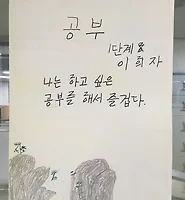 공부
1단계
이희자
나는 하고 싶은
공부를 해서 즐겁다.